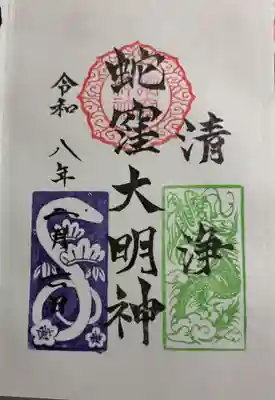 清浄
蛇窪大明神
令和八年
二月二日